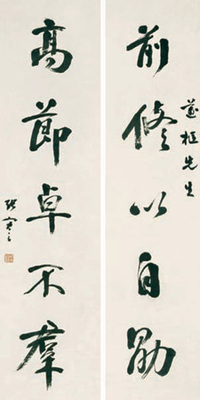 先生
前修以自勖
高節卓不羣